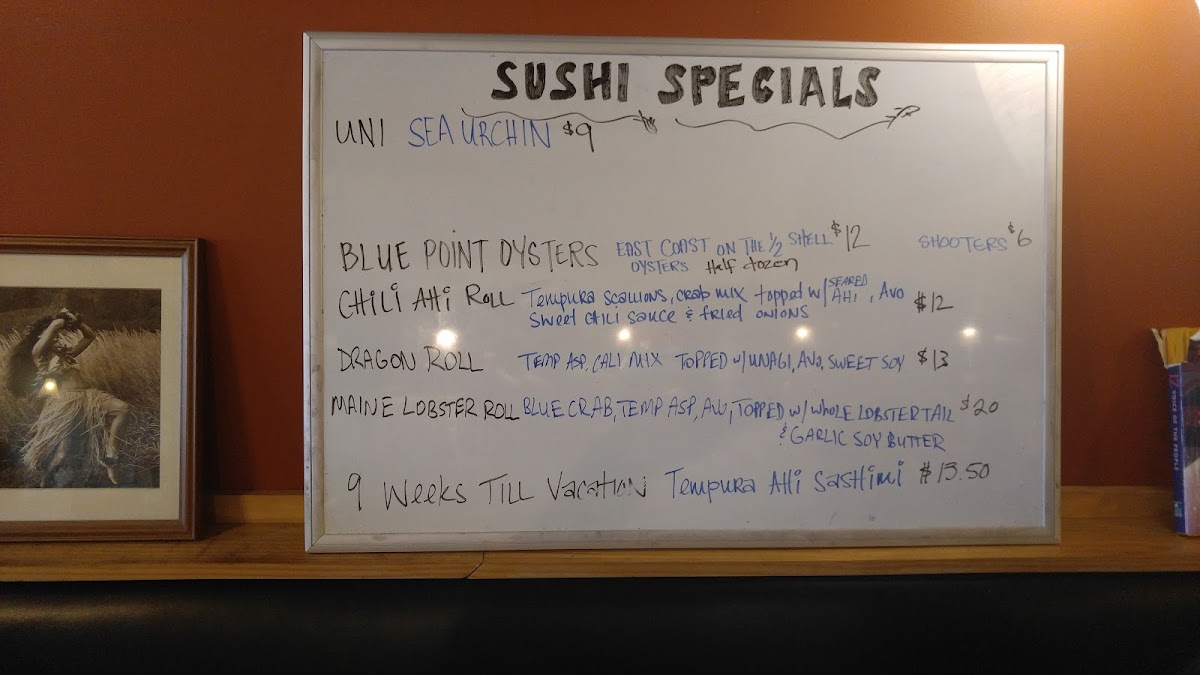 SUSHI SPECIALS
UNI SEA URCHIN $9
BLUE POINT OYSTERS EAST COAST ON THE 1/2 SHELL $12 SHOOTERS $6
OYSTERS Half dozen
CHILI AHI ROLL Tempura scallions, crab mix topped w/ SEARED AHI, Avo $12
Sweet chili sauce & fried onions
DRAGON ROLL TEMP ASP, CALI MIX TOPPED w/ UNAGI, AVO, SWEET SOY $13
MAINE LOBSTER ROLL BLUE CRAB, TEMP ASP, AVO, TOPPED w/ WHOLE LOBSTER TAIL $20
& GARLIC SOY BUTTER
9 Weeks Till Vacation Tempura Ahi Sashimi $13.50
VOICE OF THE PEOPLE